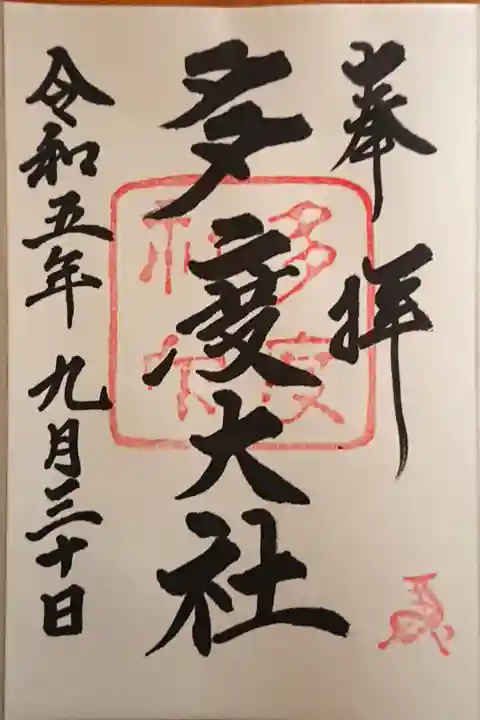 奉拝
多度大社
多度神宮
令和五年九月三十日